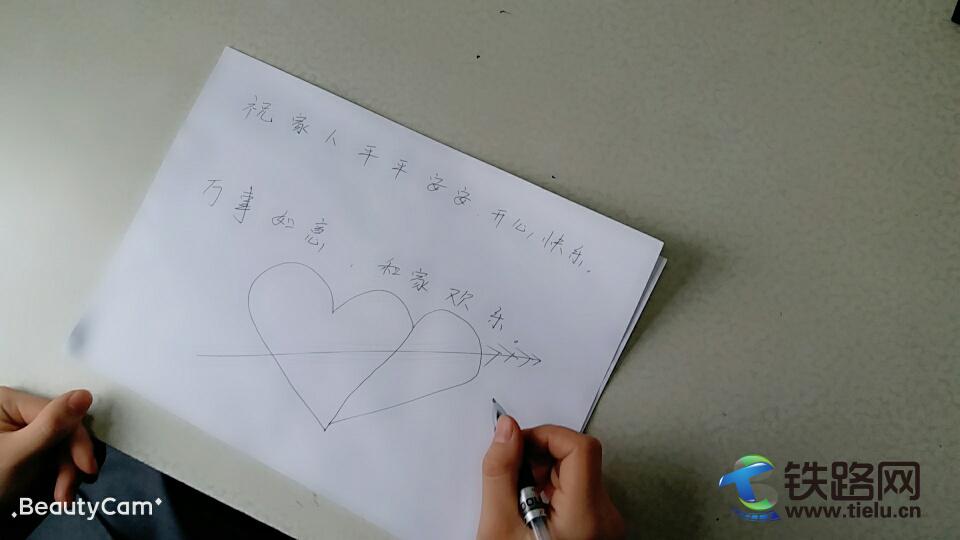 祝家人平平安安.开心,快乐.
万事如意.和家欢乐.
BeautyCam
铁路网
www.tielu.cn